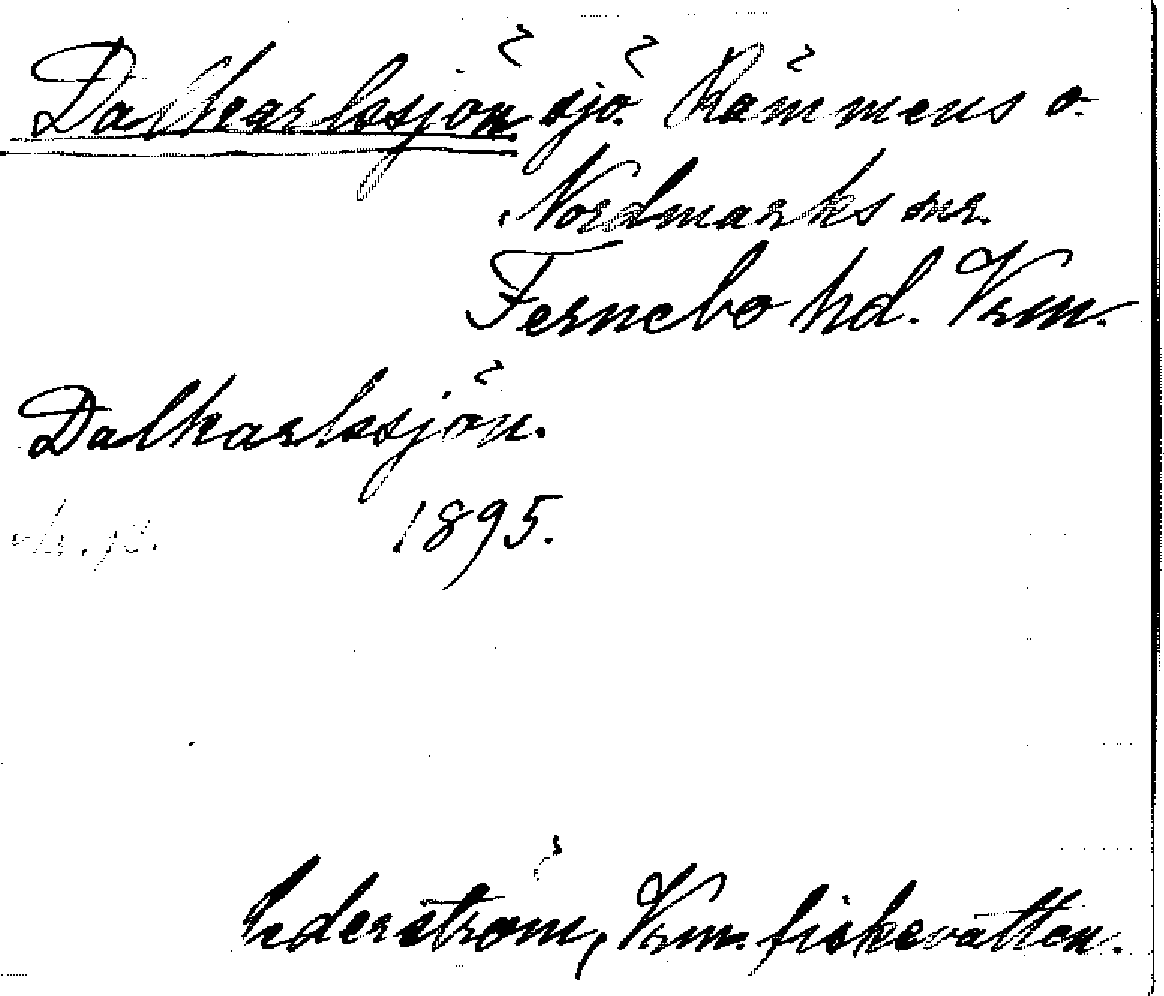 Dalkarlssjön sjö. Rämmens o.
Nordmarks snr.
Fernebo hd. Vrm.
Dalkarlssjön.
1895.
Cederström, Vrm. fiskevatten.